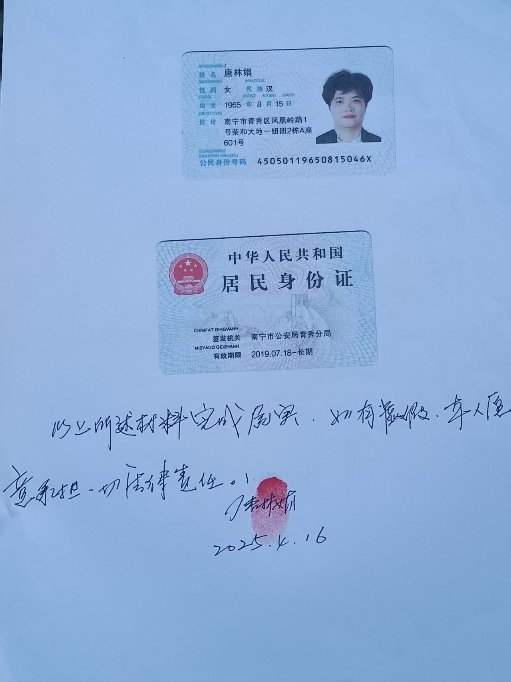 姓名 唐林娟
性别 女 民族 汉
出生 1965 年 8 月 15 日
住址 南宁市青秀区凤凰岭路1
号荣和大地一组团2栋A座
601号
公民身份号码 45050119650815046X
中华人民共和国
居民身份证
签发机关 南宁市公安局青秀分局
有效期限 2019.07.18-长期
以上所述材料完成属实，如有虚假，本人愿
意承担一切法律责任。
唐林娟
2025.4.16